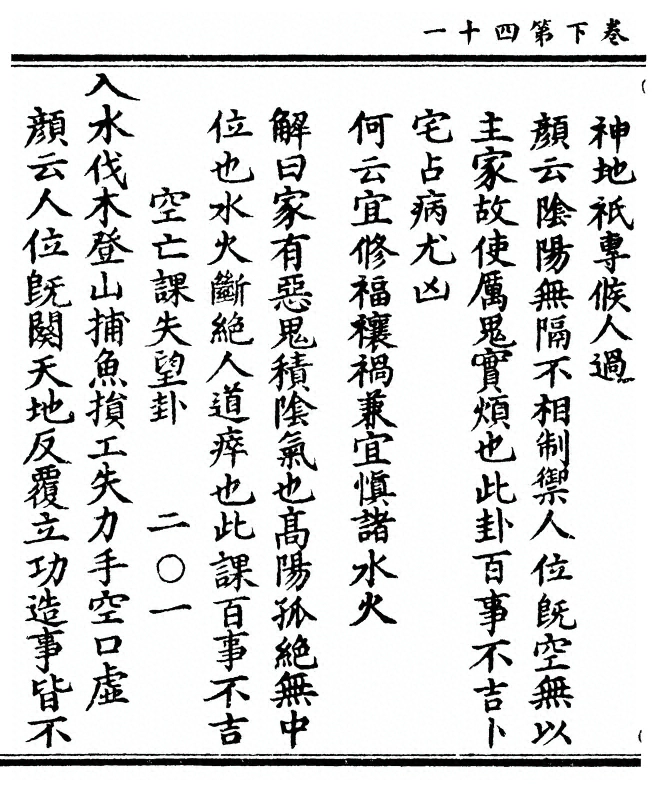 卷下第四十一
神地祇專候人過
顏云陰陽無隔不相制禦人位旣空無以
主家故使厲鬼實煩也此卦百事不吉卜
宅占病尤凶
何云宜修福禳禍兼宜慎諸水火
解曰家有惡鬼積陰氣也高陽孤絕無中
位也水火斷絕人道瘁也此課百事不吉
空亡課失望卦 二〇一
入水伐木登山捕魚損工失力手空口虛
顏云人位旣闋天地反覆立功造事皆不